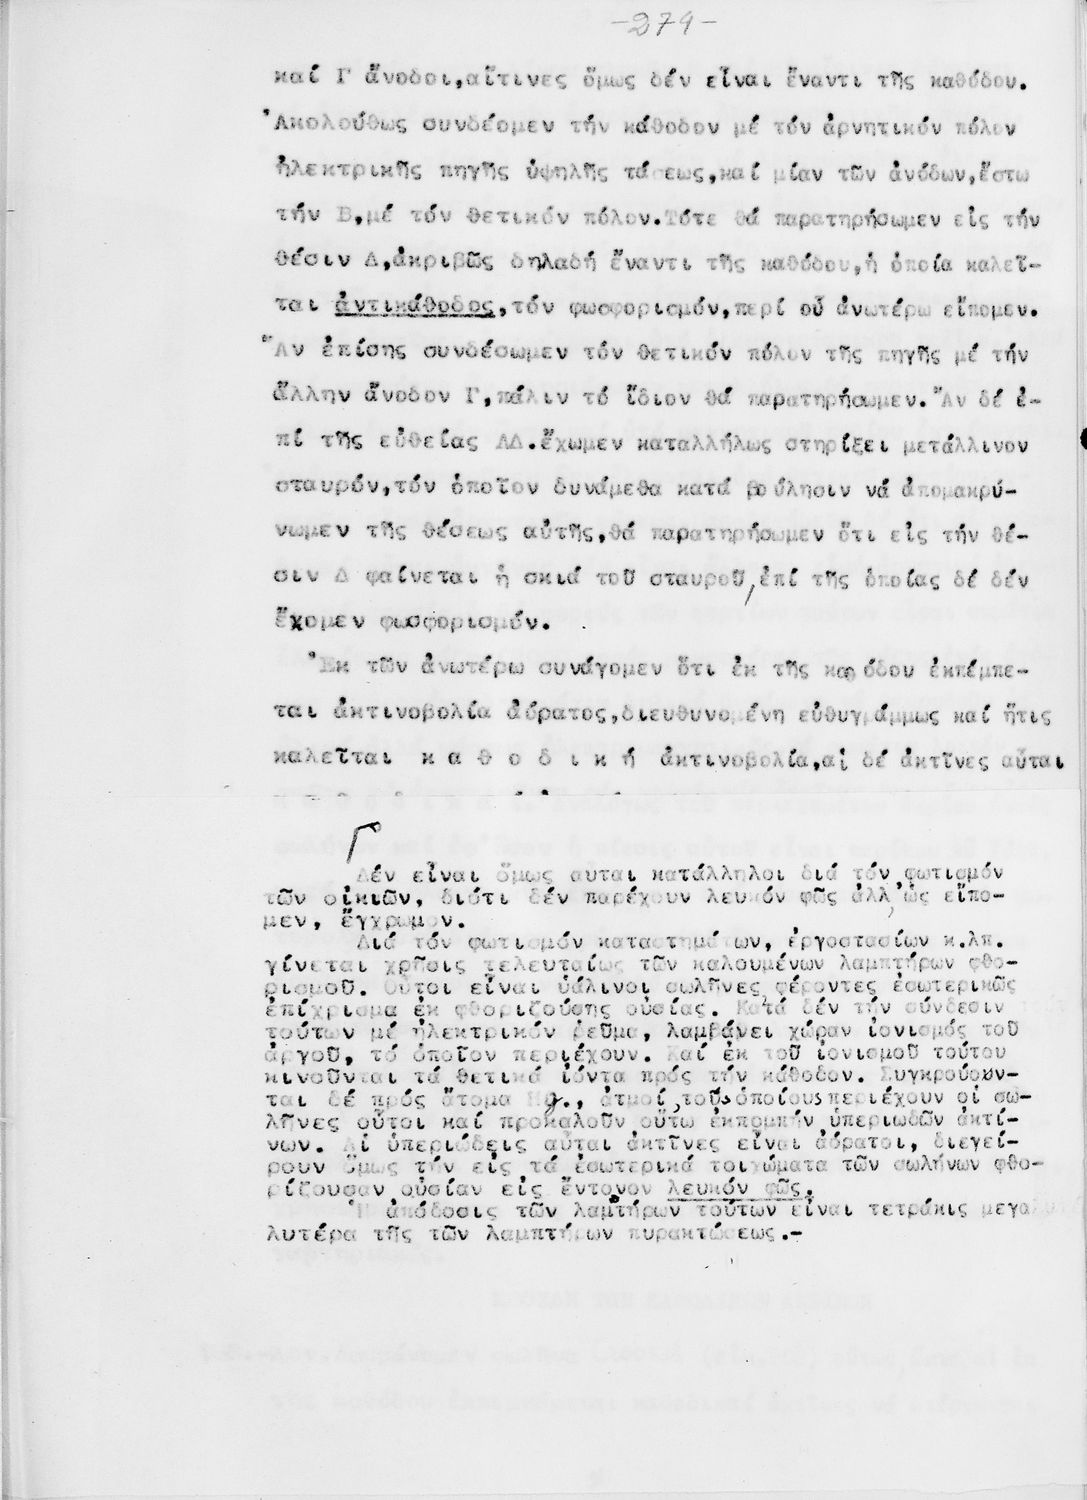 -279-
καί Γ ἄνοδοι,αἵτινες ὅμως δέν εἶναι ἔναντι τῆς καθόδου.
Ἀκολούθως συνδέομεν τήν κάθοδον μέ τόν ἀρνητικόν πόλον
ἠλεκτρικῆς πηγῆς ὑψηλῆς τάσεως,καί μίαν τῶν ἀνόδων,ἔστω
τήν Β,μέ τόν θετικόν πόλον.Τότε θά παρατηρήσωμεν εἰς τήν
θέσιν Δ,ἀκριβῶς δηλαδή ἔναντι τῆς καθόδου,ἡ ὁποία καλεῖ-
ται ἀντικάθοδος,τόν φωσφορισμόν,περί οὗ ἀνωτέρω εἴπομεν.
Ἄν ἐπίσης συνδέσωμεν τόν θετικόν πόλον τῆς πηγῆς μέ τήν
ἄλλην ἄνοδον Γ,πάλιν τό ἴδιον θά παρατηρήσωμεν.Ἄν δέ ἐ-
πί τῆς εὐθείας ΑΔ.ἔχωμεν καταλλήλως στηρίξει μετάλλινον
σταυρόν,τόν ὁποῖον δυνάμεθα κατά βούλησιν νά ἀπομακρύ-
νωμεν τῆς θέσεως αὐτῆς,θά παρατηρήσωμεν ὅτι εἰς τήν θέ-
σιν Δ φαίνεται ἡ σκιά τοῦ σταυροῦ,ἐπί τῆς ὁποίας δέ δέν
ἔχομεν φωσφορισμόν.
Ἐκ τῶν ἀνωτέρω συνάγομεν ὅτι ἐκ τῆς καθόδου ἐκπέμπε-
ται ἀκτινοβολία ἀόρατος,διευθυνομένη εὐθυγράμμως καί ἥτις
καλεῖται κ α θ ο δ ι κ ή ἀκτινοβολία,αἱ δέ ἀκτῖνες αὗται
Δέν εἶναι ὅμως αὗται κατάλληλοι διά τόν φωτισμόν
τῶν οἰκιῶν, διότι δέν παρέχουν λευκόν φῶς ἀλλ,ὡς εἴπο-
μεν, ἔγχρωμον.
Διά τόν φωτισμόν καταστημάτων, ἐργοστασίων κ.λπ.
γίνεται χρῆσις τελευταίως τῶν καλουμένων λαμπτήρων φθο-
ρισμοῦ. Οὗτοι εἶναι ὑάλινοι σωλῆνες,φέροντες ἐσωτερικῶς
ἐπίχρισμα ἐκ φθοριζούσης οὐσίας. Κατά δέν τήν σύνδεσιν
τούτων μέ ἠλεκτρικόν ρεῦμα, λαμβάνει χώραν ἰονισμός τοῦ
ἀργοῦ, τό ὁποῖον περιέχουν. Καί ἐκ τοῦ ἰονισμοῦ τούτου
κινοῦνται τά θετικά ἰόντα πρός τήν κάθοδον. Συγκρούον-
ται δέ πρός ἄτομα Hg., ἀτμοί,τοῦς ὁποίους περιέχουν οἱ σω-
λῆνες οὗτοι καί προκαλοῦν οὕτω ἐκπομπήν ὑπεριωδῶν ἀκτί-
νων. Αἱ ὑπεριώδεις αὗται ἀκτῖνες εἶναι ἀόρατοι, διεγεί-
ρουν ὅμως τήν εἰς τά ἐσωτερικά τοιχώματα τῶν σωλήνων φθο-
ρίζουσαν οὐσίαν εἰς ἔντονον λευκόν φῶς.
Ἡ ἀπόδοσις τῶν λαμπτήρων τούτων εἶναι τετράκις μεγα
λυτέρα τῆς τῶν λαμπτήρων πυρακτώσεως.-